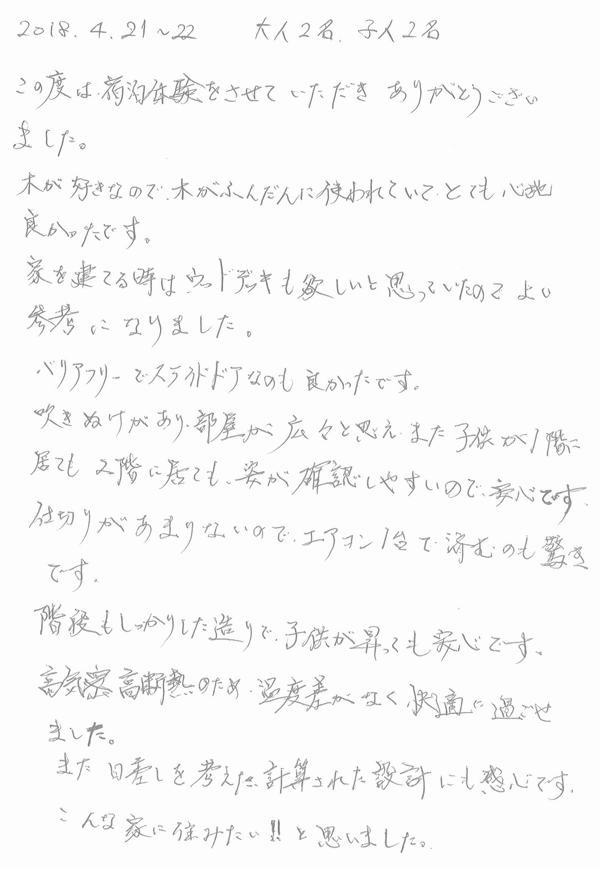 2018.4.21～22　大人2名、子人2名
この度は、宿泊体験をさせていただき ありがとうござい
ました。
木が好きなので、木がふんだんに使われていて、とても心地
良かったです。
家を建てる時は、ウッドデッキも欲しいと思っていたので よい
参考になりました。
バリアフリーでスライドドアなのも良かったです。
吹きぬけがあり、部屋が広々と思え、また子供が1階に
居ても2階に居ても、姿が確認しやすいので、安心です。
仕切りがあまりないので、エアコン1台で済むのも驚き
です。
階段もしっかりした造りで、子供が昇っても安心です。
高気密高断熱のため、温度差がなく、快適に過ごせ
ました。
また日差しを考えた計算された設計にも感心です。
こんな家に住みたい!!と思いました。